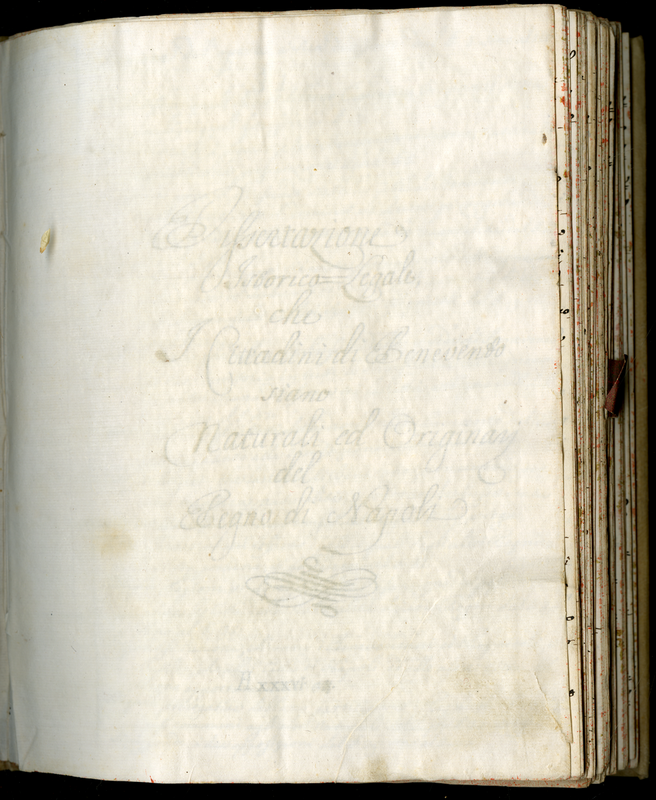 Dissertazione
Istorico=Legale,
che
I Cittadini di Benevento
siano
Naturali ed Originarij
del
Regno di Napoli